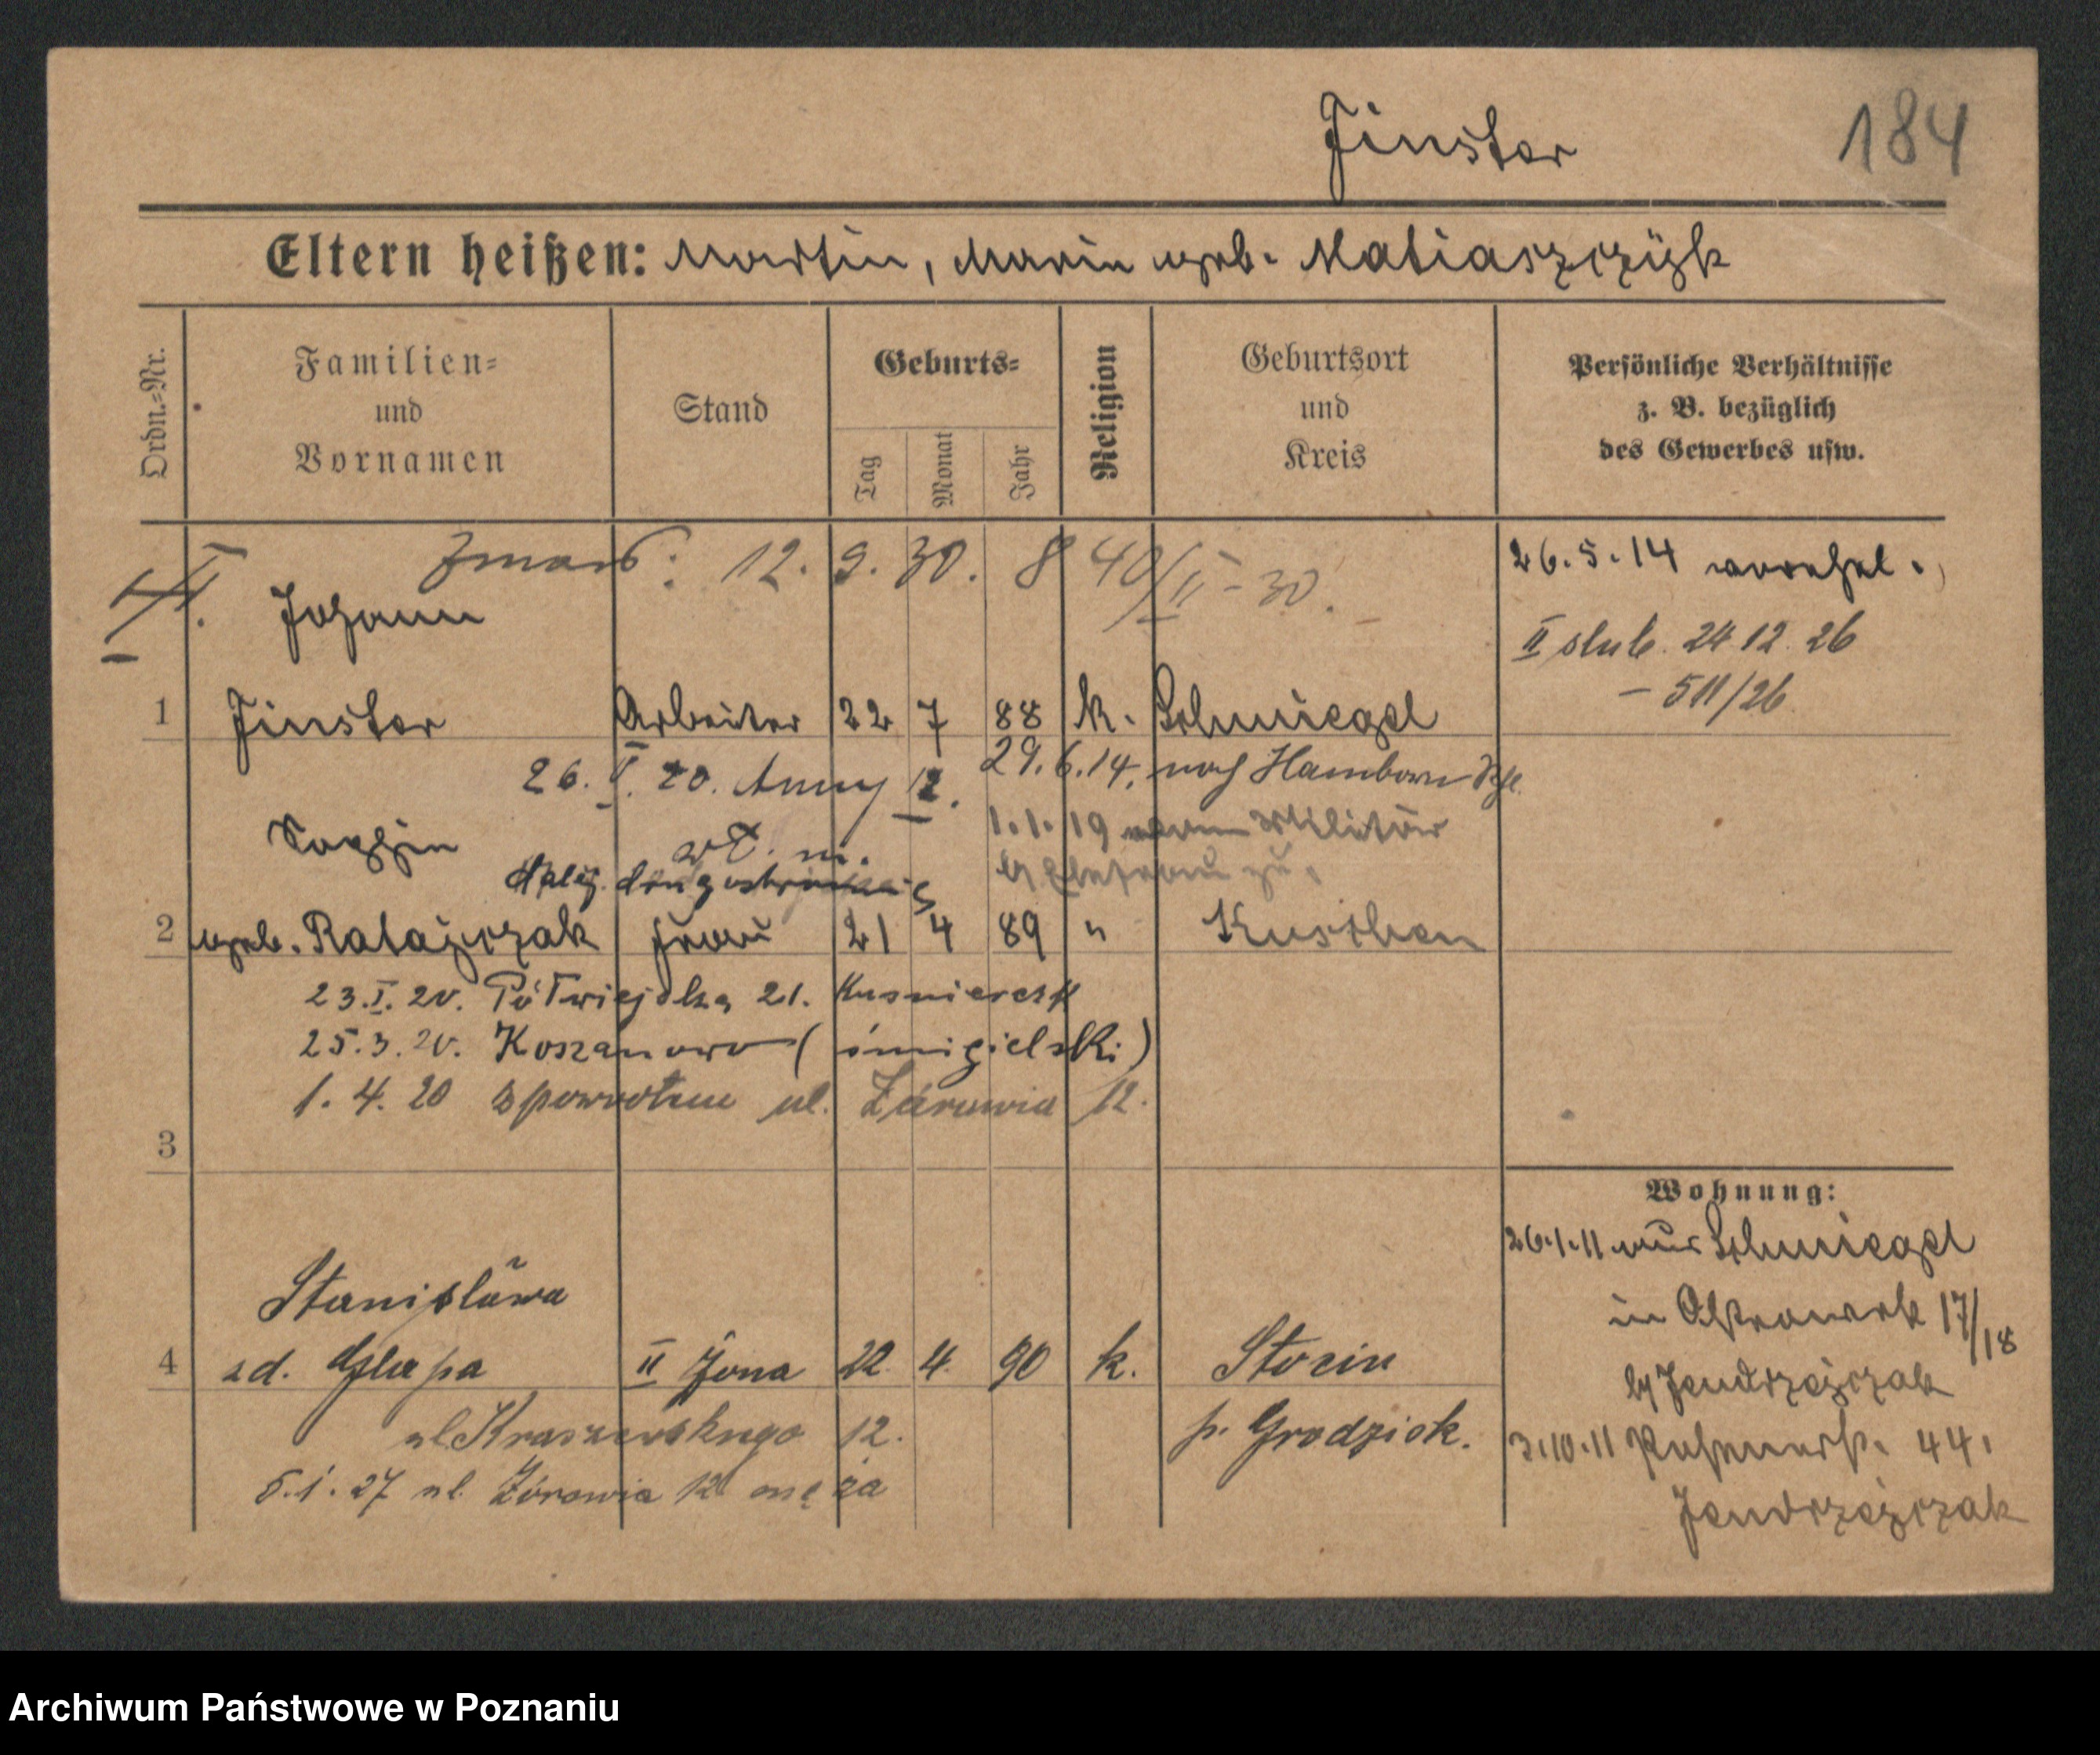 Finster 184
Eltern heißen: Martin, Marie geb. Matiaszczÿk
Ordn.-Nr.
Familien-
und
Vornamen
Stand
Geburts-
Tag
Monat
Jahr
Religion
Geburtsort
und
Kreis
Persönliche Verhältnisse
z. B. bezüglich
des Gewerbes usw.
Zmarł: 12. 9. 30. 840/II-30.
26.5.14 verehel.
Johann
II ślub. 24 12. 26
– 511/26
1 Finster Arbeiter 22 7 88 k. Schmiegel
26. 20. Anny 12. 29.6.14. nach Hamborn
Sophie 1.1.19 vom Militär
zur Ehefrau zu.
2 geb. Ratajczak Frau 21 4 89 " Kuschen
23.I.20. Półwiejska 21.
25.3.20. Koszanowo (śmigielski)
1. 4. 20 z powrotem ul. Żórawia 12.
3
Wohnung:
26.1.11 aus Schmiegel
in Ostrowek 17/18
b/ Jendrzejczak
Stanisława
4 zd. Głupa II żona 22. 4. 90 k. Stęszew
ul Kraszewskiego 12. p. Grodzisk.
3.10.11 44.
Jendrzejczak
5.1.27 ul. Żórawia 12 męża
Archiwum Państwowe w Poznaniu